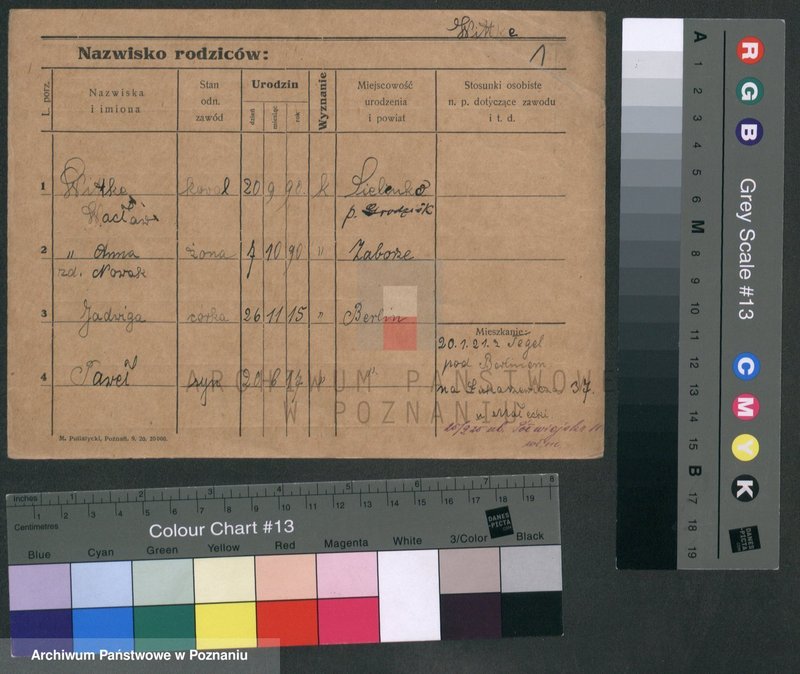 Wittke
Nazwisko rodziców:
1
L. porz.
Nazwiska
i imiona
Stan
odn.
zawód
Urodzin
dzień
miesiąc
rok
Wyznanie
Miejscowość
urodzenia
i powiat
Stosunki osobiste
n. p. dotyczące zawodu
i t. d.
1 Wittke kowal 20 9 90. k
Wacław p. Grodzisk
2 " Anna żona 4 10 90 " Zaborze
zd. Nowak
3 Jadwiga córka 26 11 15 " Berlin
Mieszkanie:
20.1.21. z Tegel
pod Berlinem
4 Paweł syn 20 6 17 " "
na 37.
u. Małecki
M. Putiatycki, Poznań, 9. 20. 20000.
ARCHIWUM PAŃSTWOWE
W POZNANIU
inches 1 2 3 4 5 6 7 8
Centimetres 1 2 3 4 5 6 7 8 9 10 11 12 13 14 15 16 17 18 19
Colour Chart #13
DANES
-PICTA
.COM
Blue Cyan Green Yellow Red Magenta White 3/Color Black
Archiwum Państwowe w Poznaniu
A 1 2 3 4 5 6 M 8 9 10 11 12 13 14 15 B 17 18 19
R G B
Grey Scale #13
C M Y K
DANES
-PICTA
.COM